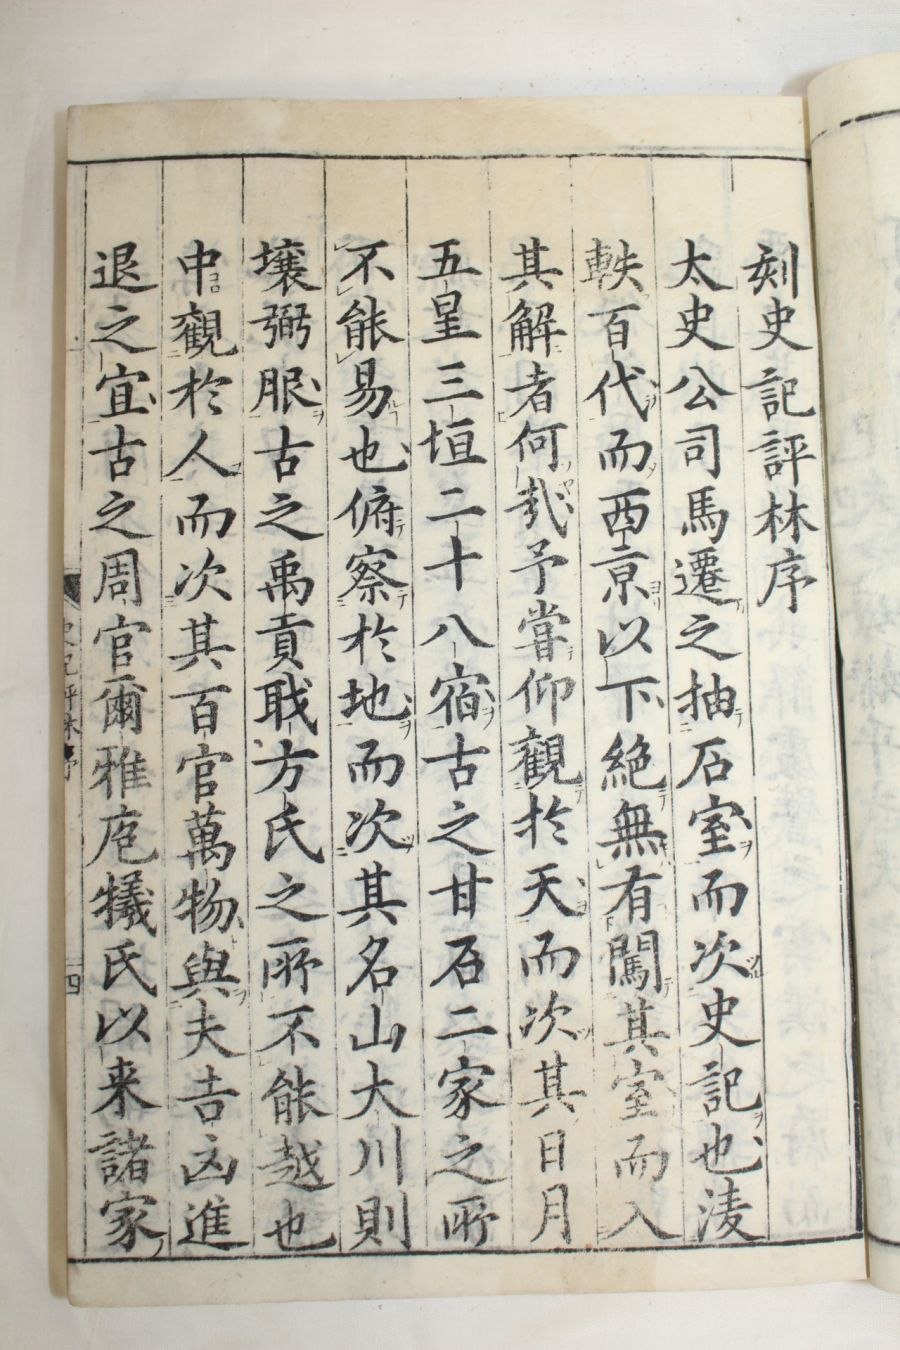 刻史記評林序
太史公司馬遷之抽石室而次史記也淩
軼百代而西亰以下絶無有闖其室而入
其解者何㢤予嘗仰觀於天而次其日月
五星三垣二十八宿古之甘石二家之所
不能易也俯察於地而次其名山大川則
壤弼服古之禹貢職方氏之所不能越也
中觀於人而次其百官萬物與夫吉凶進
退之宜古之周官爾雅庖犧氏以来諸家
史記評林 序 四